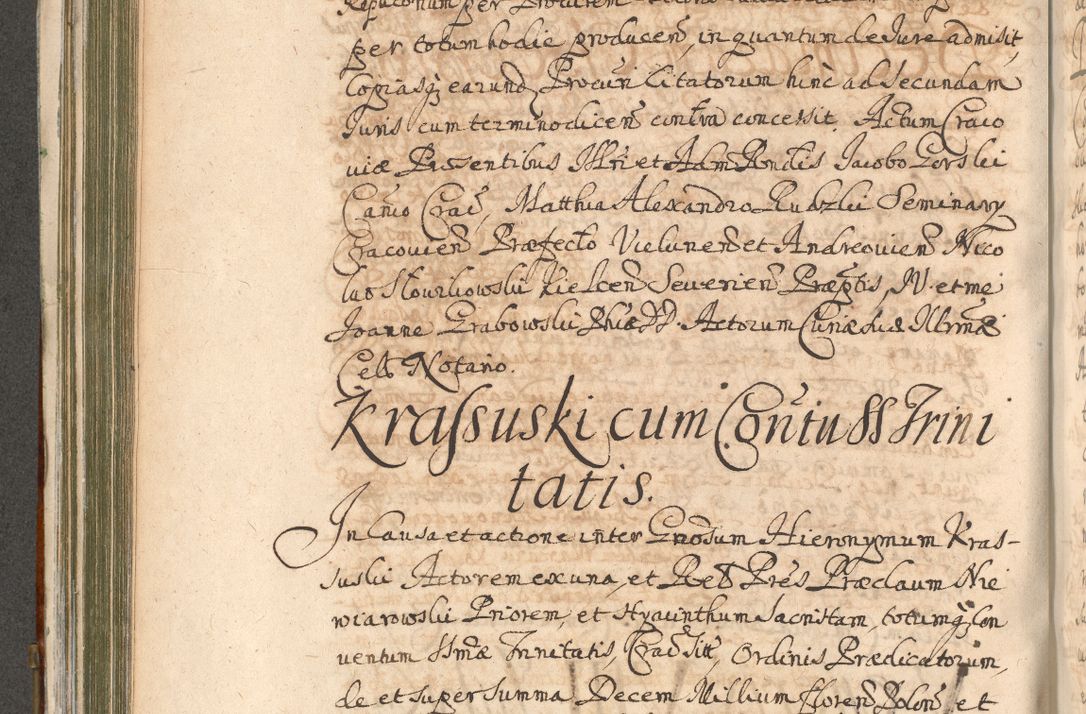 per totum hodie producen, in quantum de Iure admisit,
Copiasq earund Procuri Citatorum hinc ad Secundam
Iuris cum termino dicen contra concessit. Actum Craco
viæ Præsentibus Illri et Adm Rendis Iacobo Gorski
Canco Crac, Matthia Alexandro Rudzki Seminary
Cracovien Præfecto Vielunen et Andreovien Nico
lao Slowikowski Kielcen Severien Præptis, N. et me
Ioanne Grabowski Phiæ DD. Actorum Curiæ suæ Illrmæ
Cels Notario.
Krassuski cum Contu SS Trini
tatis.
In Causa et actione inter Gnosum Hieronymum Kras-
suski Actorem ex una, et Rel Pres Præclaum Nie
wiarowski Priorem, et Hyacinthum Sacristam, totumq Con
ventum SSmæ Trinitatis, Crac Sitt, Ordinis Prædicatorum,
de et super Summa Decem Millium floren Polon et